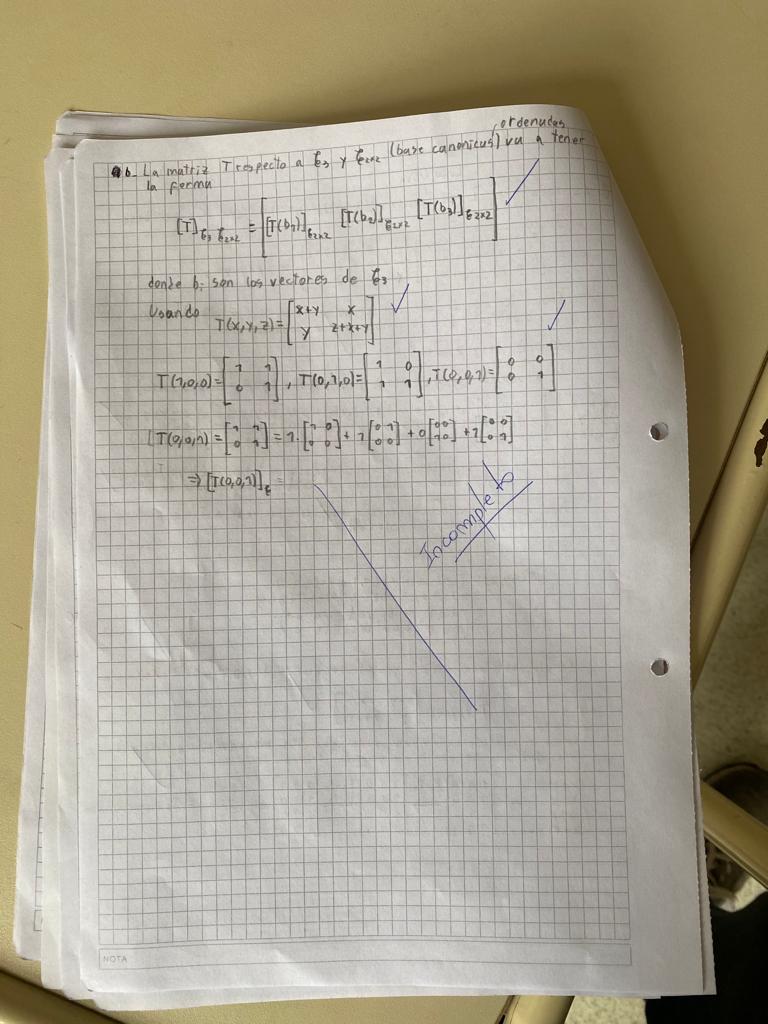 b- La matriz T respecto a ℰ₃ y ℰ₂ₓ₂ (base canonicas) ordenadas va a tener
la forma
[T]ℰ₃ ℰ₂ₓ₂ = [[T(b₁)]ℰ₂ₓ₂ [T(b₂)]ℰ₂ₓ₂ [T(b₃)]ℰ₂ₓ₂]
donde bᵢ son los vectores de ℰ₃
Usando T(x,y,z)=[x+y x; y z+x+y]
T(1,0,0)=[1 1; 0 1], T(0,1,0)=[1 0; 1 1], T(0,0,1)=[0 0; 0 1]
[T(0,0,1)=[1 1; 0 1]=1·[1 0; 0 0]+1[0 1; 0 0]+0[0 0; 1 0]+1[0 0; 0 1]
⇒[T(0,0,1)]ℰ =
Incompleto
NOTA